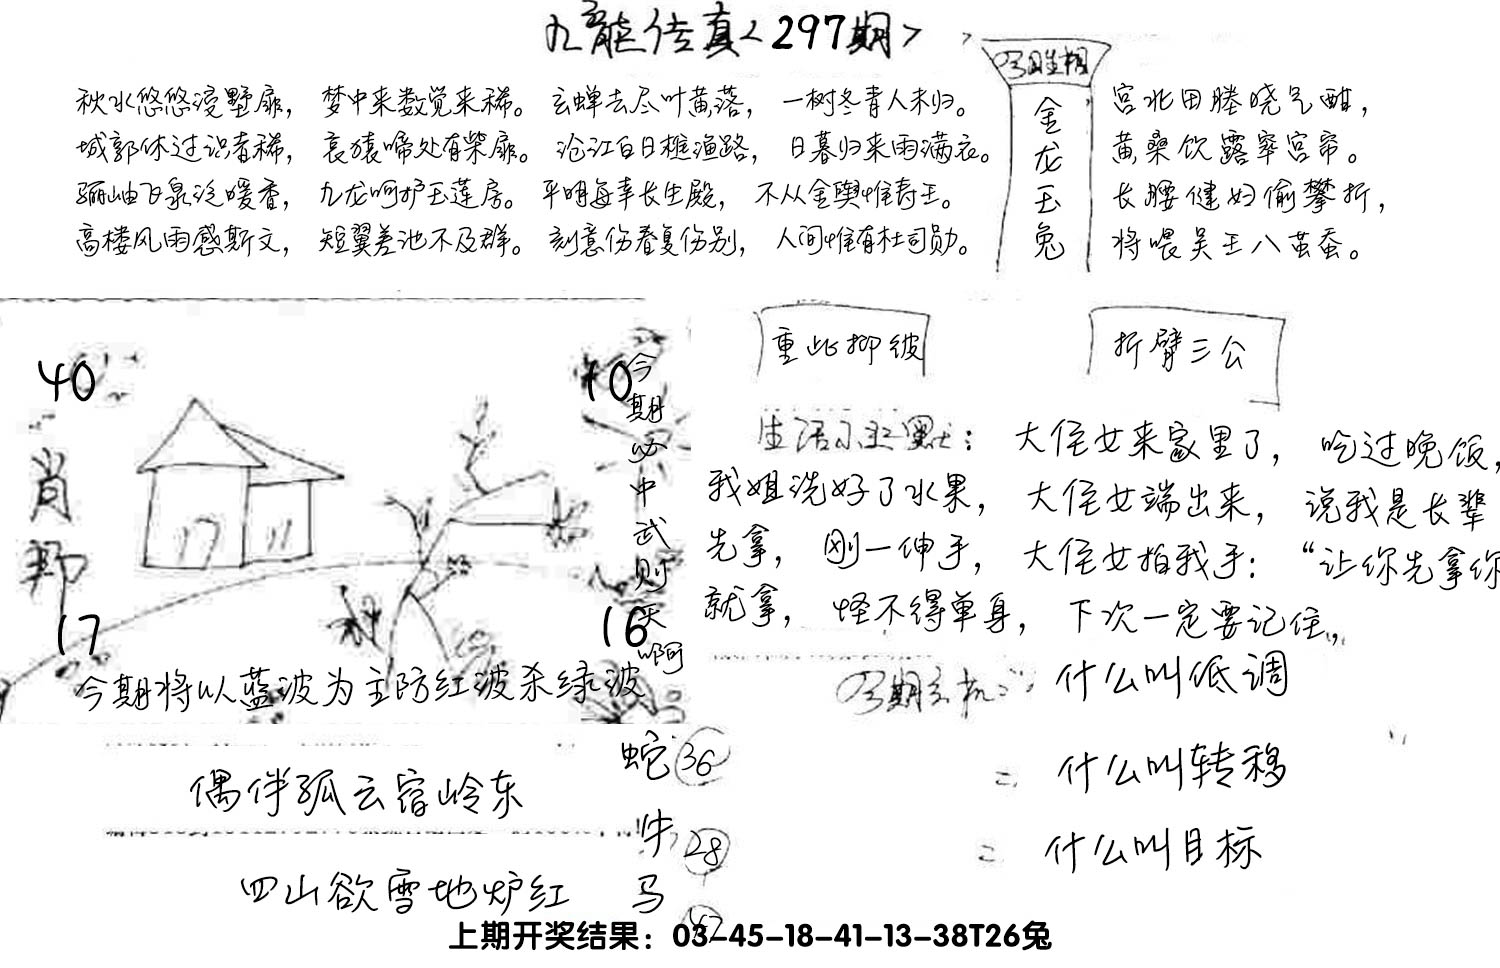 九龙传真<297期>
秋水悠悠浸墅扉，梦中来数觉来稀。玄蝉去尽叶黄落，一树冬青人未归。
城郭休过识者稀，哀猿啼处有柴扉。沧江白日樵渔路，日暮归来雨满衣。
骊岫飞泉泛暖香，九龙呵护玉莲房。平明每幸长生殿，不从金舆惟寿王。
高楼风雨感斯文，短翼差池不及群。刻意伤春复伤别，人间惟有杜司勋。
金龙玉兔
宫北田塍晓气酣，
黄桑饮露窣宫帘。
长腰健妇偷攀折，
将喂吴王八茧蚕。
40
10
肖
17
16
今期必中武则天啊
今期将以蓝波为主防红波杀绿波
重此抑彼
折臂三公
生活小幽默：大侄女来家里了，吃过晚饭，
我姐洗好了水果，大侄女端出来，说我是长辈
先拿，刚一伸手，大侄女拍我手：“让你先拿你
就拿，怪不得单身，下次一定要记住,,
什么叫低调
二 什么叫转移
二 什么叫目标
偶伴孤云宿岭东
四山欲雪地炉红
蛇 36
牛 28
马
上期开奖结果：03-45-18-41-13-38T26兔